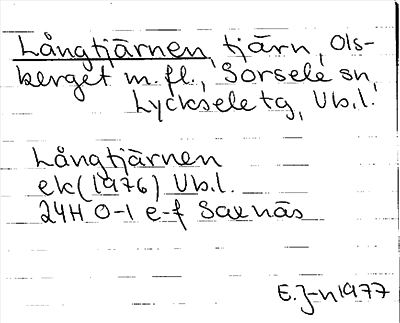 Långtjärnen, tjärn, Ols-
berget m.fl., Sorsele sn,
Lycksele tg, Vb.l.
Långtjärnen
ek (1976) Vb.l.
24H 0-1 e-f Saxnäs
E.J-n 1977